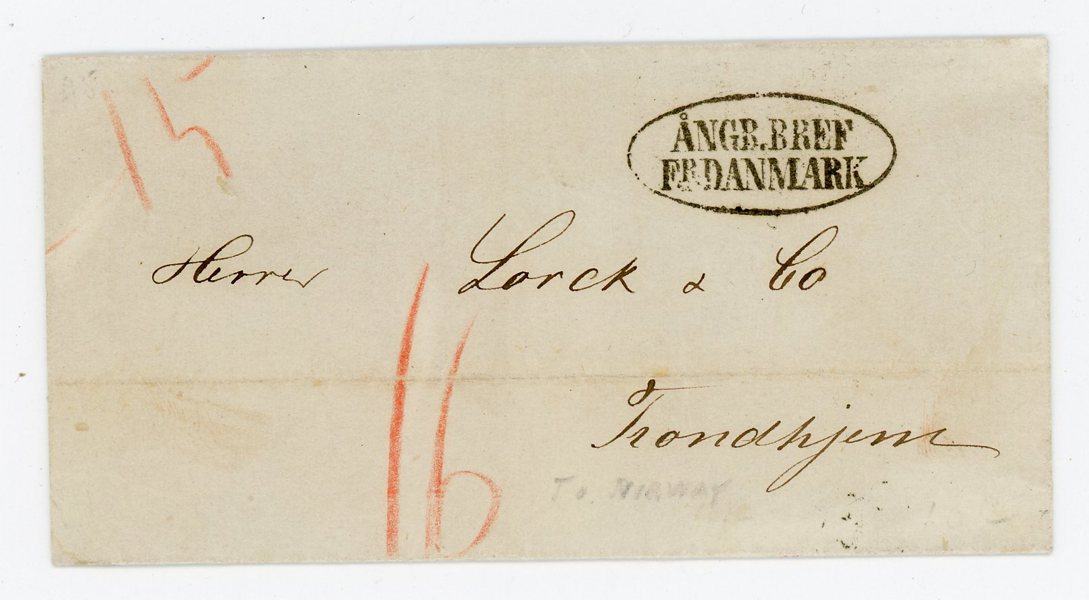 15
ÅNGB.BREF
FR.DANMARK
Herrer Lorck & Co
16
Trondhjem
To NORWAY